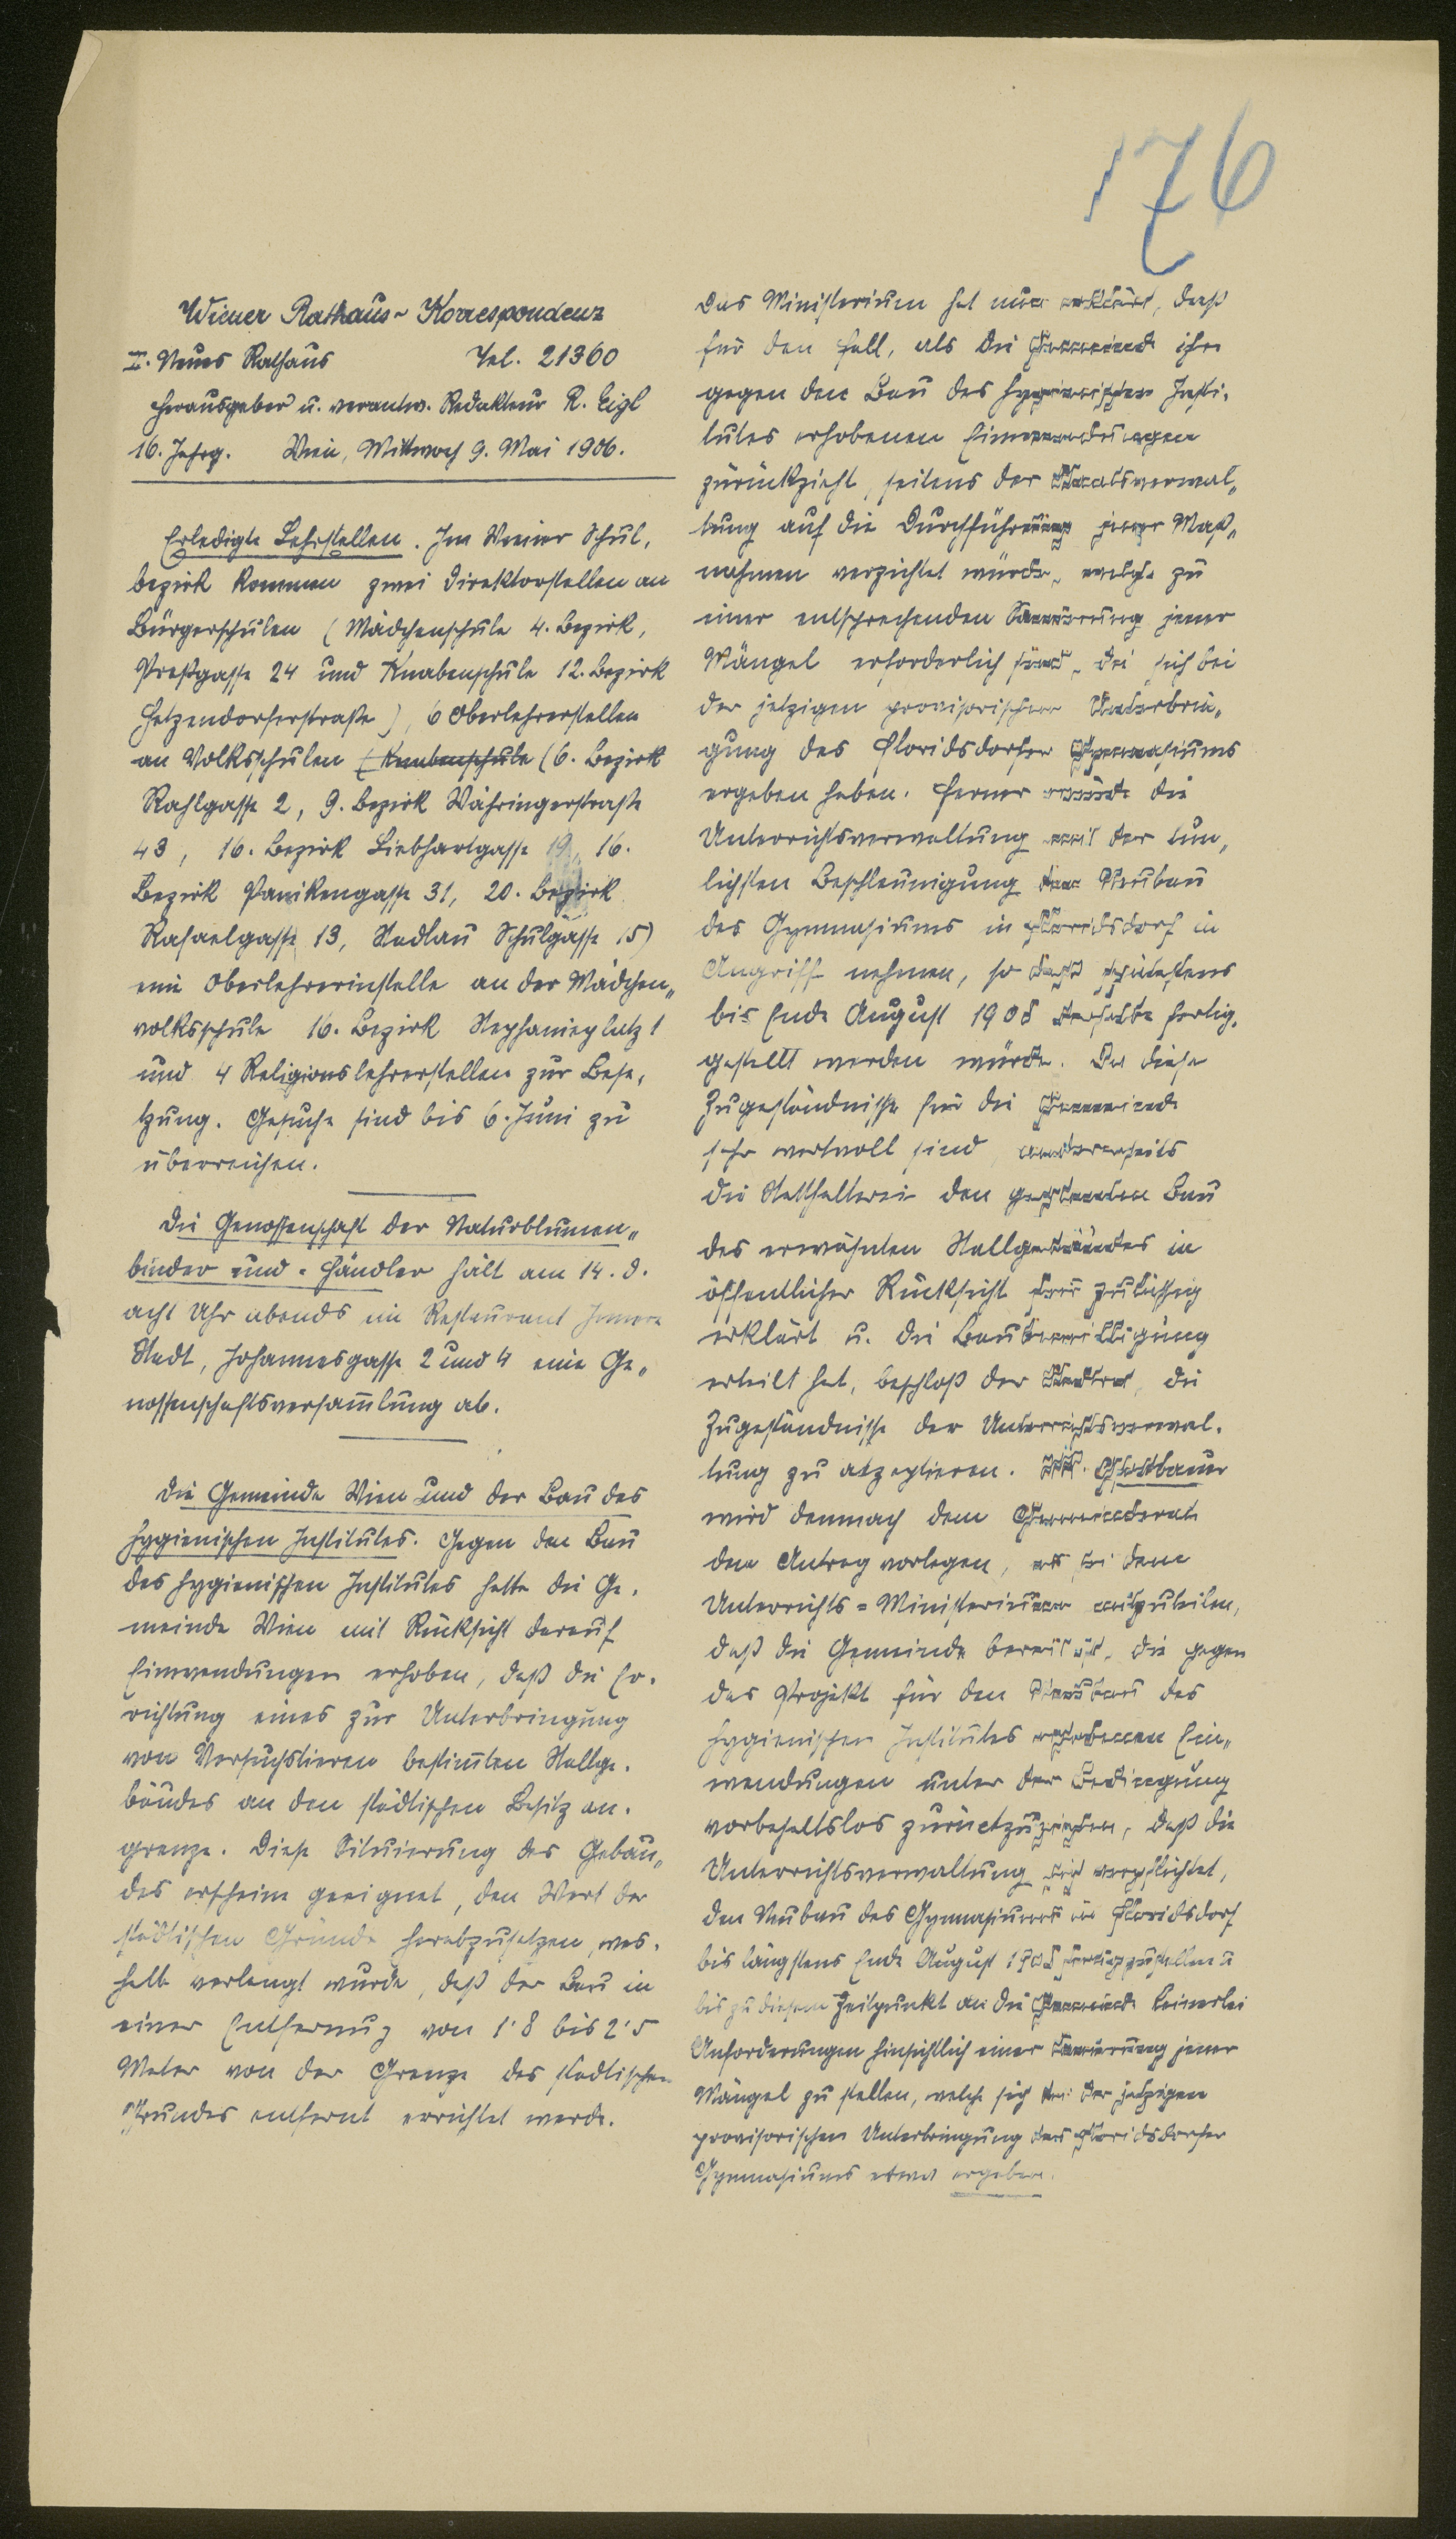 176
Wiener Rathaus-Korrespondenz
I. Neues Rathaus Tel. 21360
Herausgeber u. verantw. Redakteur R. Eigl
16. Jahrg. Wien, Mittwoch 9. Mai 1906.
Erledigte Lehrstellen. Im Wiener Schul-
bezirk kommen zwei Direktorstellen an
Bürgerschulen (Mädchenschule 4. Bezirk,
Preßgasse 24 und Knabenschule 12. Bezirk
Hetzendorferstraße), 6 Oberlehrerstellen
an Volksschulen (Knabenschule (6. Bezirk
Rahlgasse 2, 9. Bezirk Währingerstraße
43, 16. Bezirk Liebhartgasse 19, 16.
Bezirk Panikengasse 31, 20. Bezirk
Rafaelgasse 13, Stadlau Schulgasse 15)
eine Oberlehrerinstelle an der Mädchen-
volksschule 16. Bezirk Stephanieplatz 1
und 4 Religionslehrerstellen zur Bese-
tzung. Gesuche sind bis 6. Juni zu
überreichen.
Die Genossenschaft der Naturblumen-
binder und -Händler hält am 14. d.
acht Uhr abends im Restaurant Innere
Stadt, Johannesgasse 2 und 4 eine Ge-
nossenschaftsversam̅lung ab.
Die Gemeinde Wien und der Bau des
hygienischen Institutes. Gegen den Bau
des hygienischen Institutes hatte die Ge-
meinde Wien mit Rücksicht darauf
Einwendungen erhoben, daß die Er-
richtung eines zur Unterbringung
von Versuchstieren bestim̅ten Stallge-
bäudes an den städtischen Besitz an-
grenze. Diese Situierung des Gebäu-
des erscheine geeignet, den Wert der
städtischen Gründe herabzusetzen, wes-
halb verlangt wurde, daß der Bau in
einer Entfernung von 1·8 bis 2·5
Meter von der Grenze des städtischen
Grundes entfernt errichtet werde.
Das Ministerium hat nun erklärt, dass
für den Fall, als die Gemeinde ihre
gegen den Bau des hygienischen Insti-
tutes erhobenen Einwendungen
zurückzieht, seitens der Staatsverwal-
tung auf die Durchführung jener Maß-
nahmen verzichtet würde, welche zu
einer entsprechenden Sanierung jener
Mängel erforderlich sind, die sich bei
der jetzigen provisorischen Unterbrin-
gung des Floridsdorfer Gymnasiums
ergeben haben. Ferner würde die
Unterrichtsverwaltung mit der tun-
lichsten Beschleunigung den Neubau
des Gymnasiums in Floridsdorf in
Angriff nehmen, so daß spätestens
bis Ende August 1908 derselbe fertig-
gestellt werden würde. Da diese
Zugeständnisse für die Gemeinde
sehr wertvoll sind, andererseits
die Statthalterei den geplanten Bau
des erwähnten Stallgebäudes in
öffentlicher Rücksicht für zulässig
erklärt u. die Baubewilligung
erteilt hat, beschloß der Stadtrat, die
Zugeständnisse der Unterrichtsverwal-
tung zu akzeptieren.
wird demnach dem Gemeinderate
den Antrag vorlegen, es sei dem
Unterrichts-Ministerium mitzuteilen,
daß die Gemeinde bereit ist, die gegen
das Projekt für den Neubau des
hygienischen Institutes erhobenen Ein-
wendungen unter der Bedingung
vorbehaltslos zurückzuziehen, daß die
Unterrichtsverwaltung sich verpflichtet,
den Neubau des Gymnasiums in Floridsdorf
bis längstens Ende August 1908 fertigzustellen u
bis zu diesem Zeitpunkt an die Gemeinde keinerlei
Anforderungen hinsichtlich einer Sanierung jener
Mängel zu stellen, welche sich bei der jetzigen
provisorischen Unterbringung des Floridsdorfer
Gymnasiums etwa ergeben.